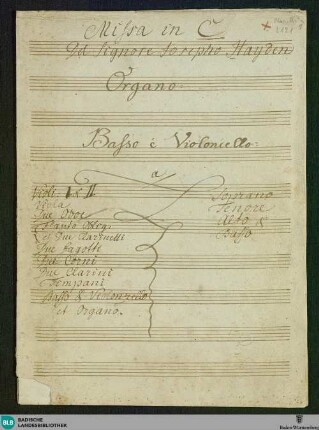 Missa in C
Del Signore Josepho Hayden
Organo.
Basso è Violoncello:
a
Violi: I & II
Viola
Due Oboe
Flauto
e Due Clarinetti
Due Fagotti
Due Corni
Due Clarini
e Tempani
Basso & Violonzello
et Organo.
Soprano
Tenore
Alto &
Basso
BLB BADISCHE
LANDESBIBLIOTHEK
Baden-Württemberg